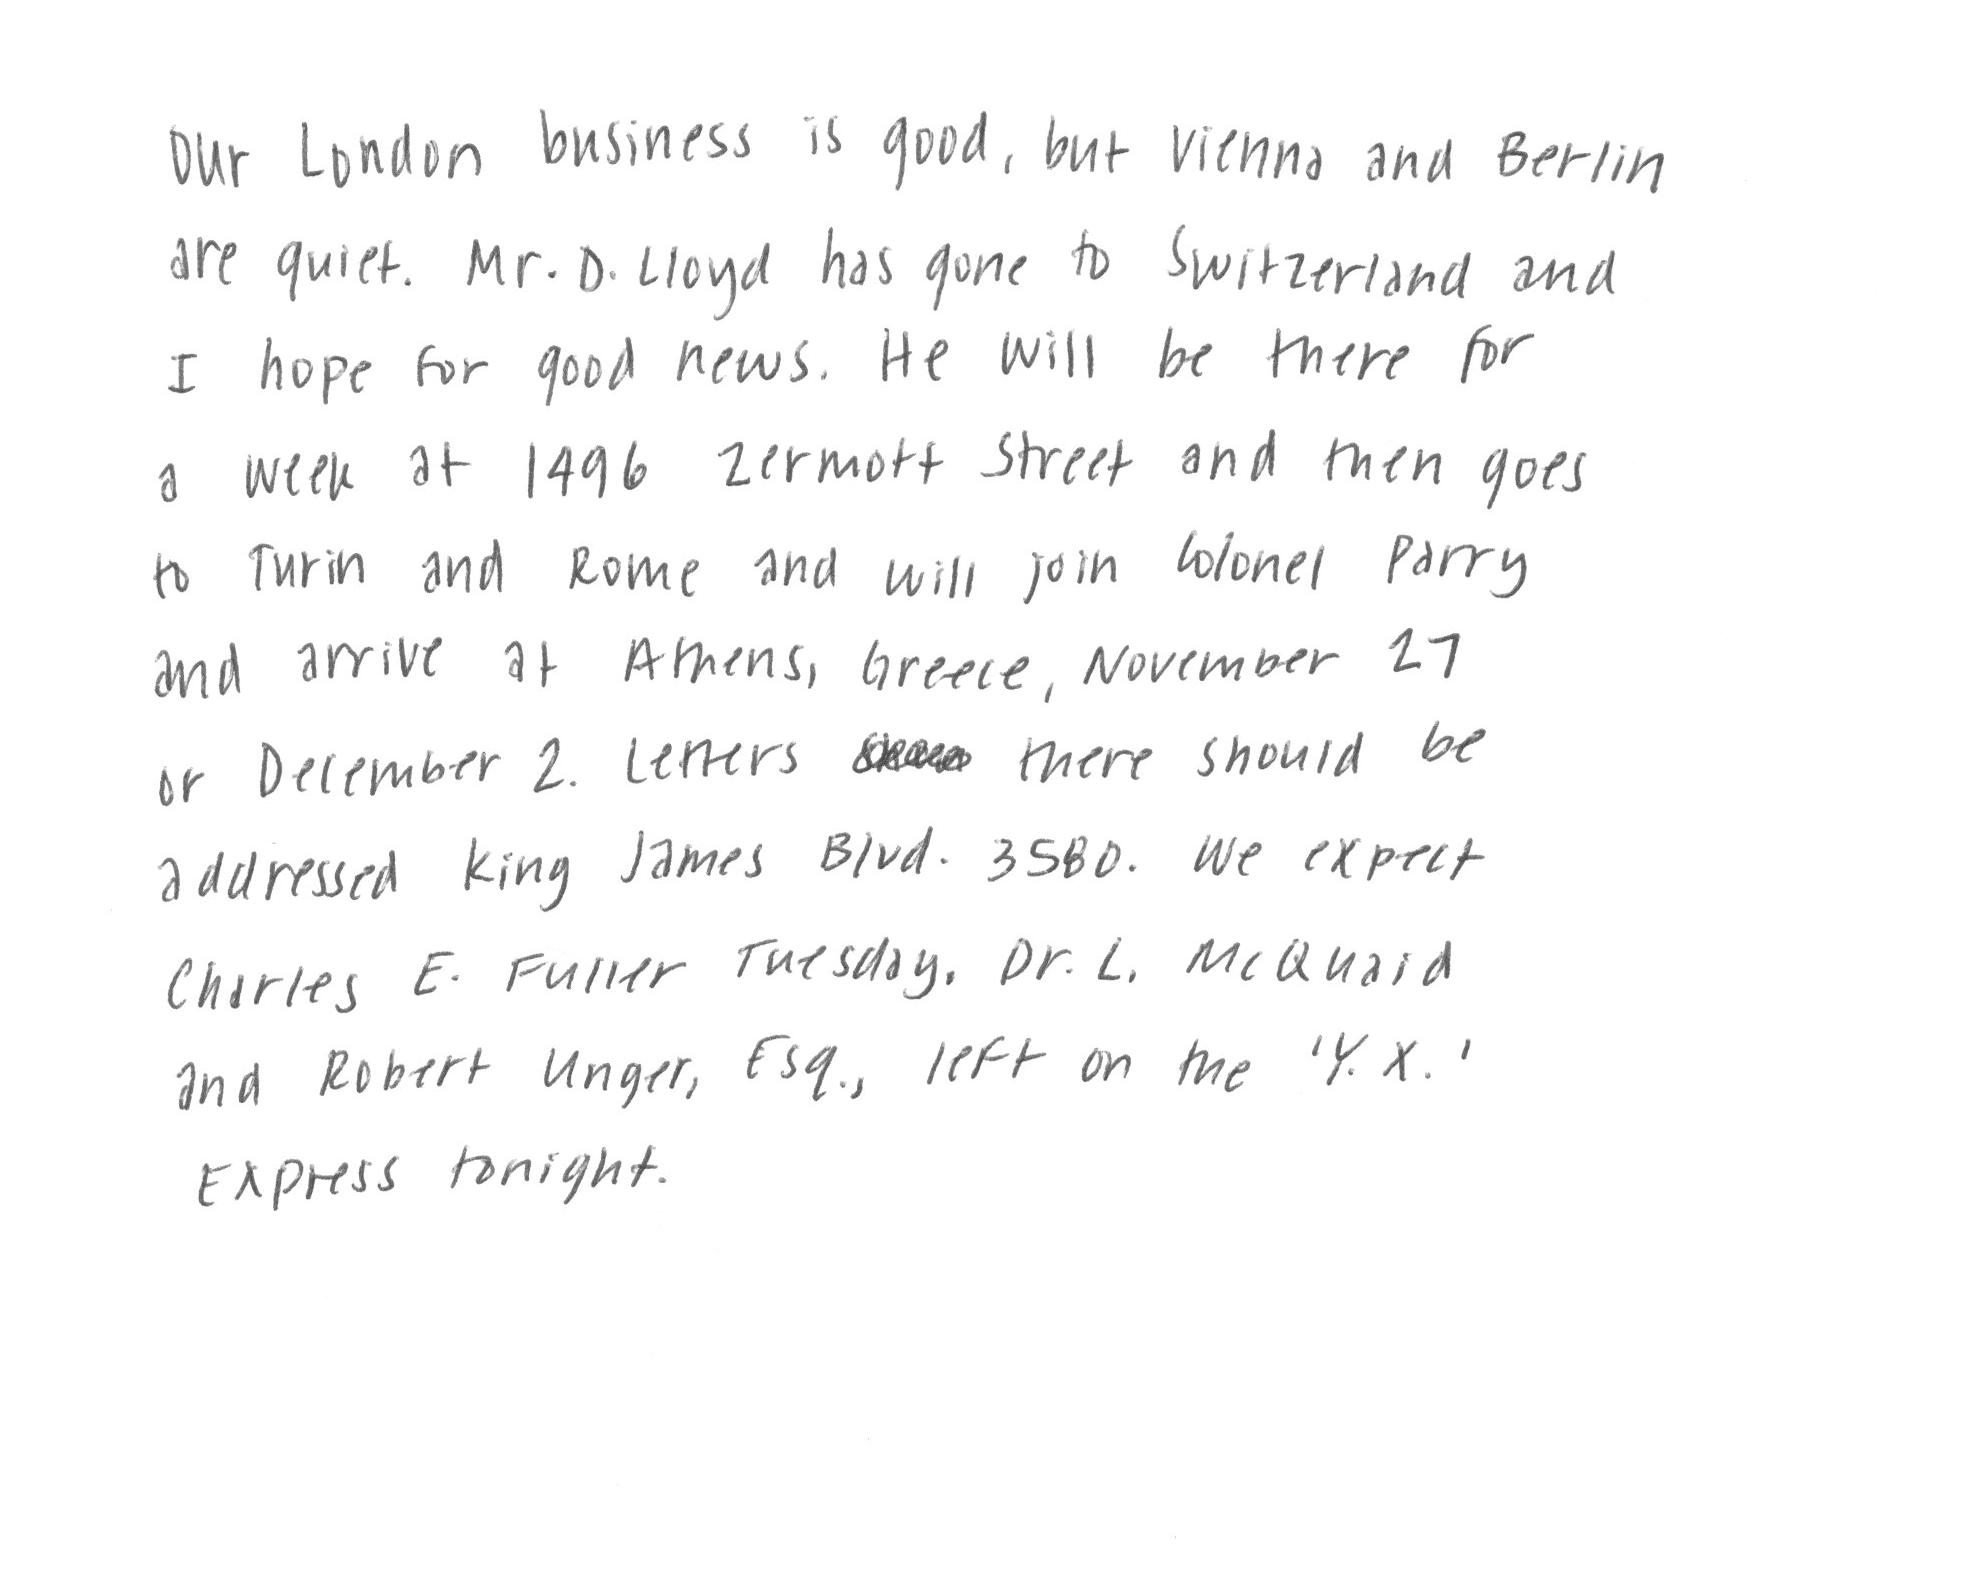 Our London business is good, but Vienna and Berlin
are quiet. Mr. D. Lloyd has gone to Switzerland and
I hope for good news. He will be there for
a week at 1496 Zermott Street and then goes
to Turin and Rome and will join Colonel Parry
and arrive at Athens, Greece, November 27
or December 2. Letters there should be
addressed King James Blvd. 3580. We expect
Charles E. Fuller Tuesday. Dr. L. McQuaid
and Robert Unger, Esq., left on the 'Y. X.'
Express tonight.